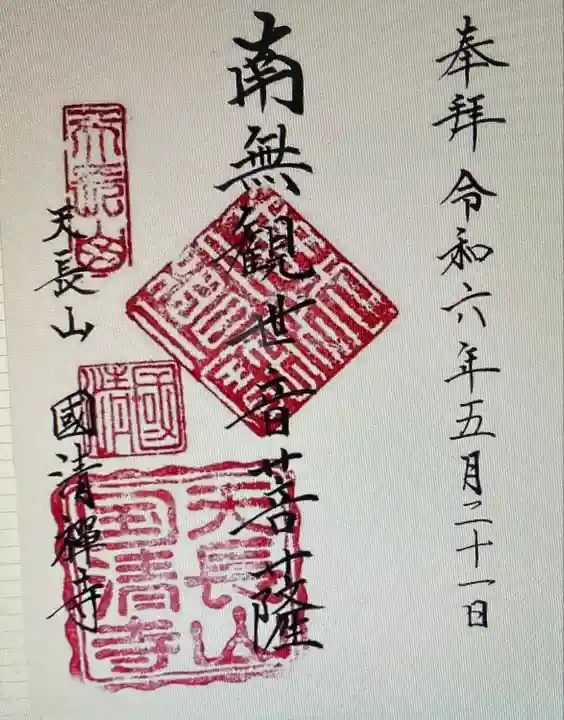 奉拜 令和六年五月二十一日
南無観世音菩薩
天長山 國清禅寺
天長山
國清寺
國清